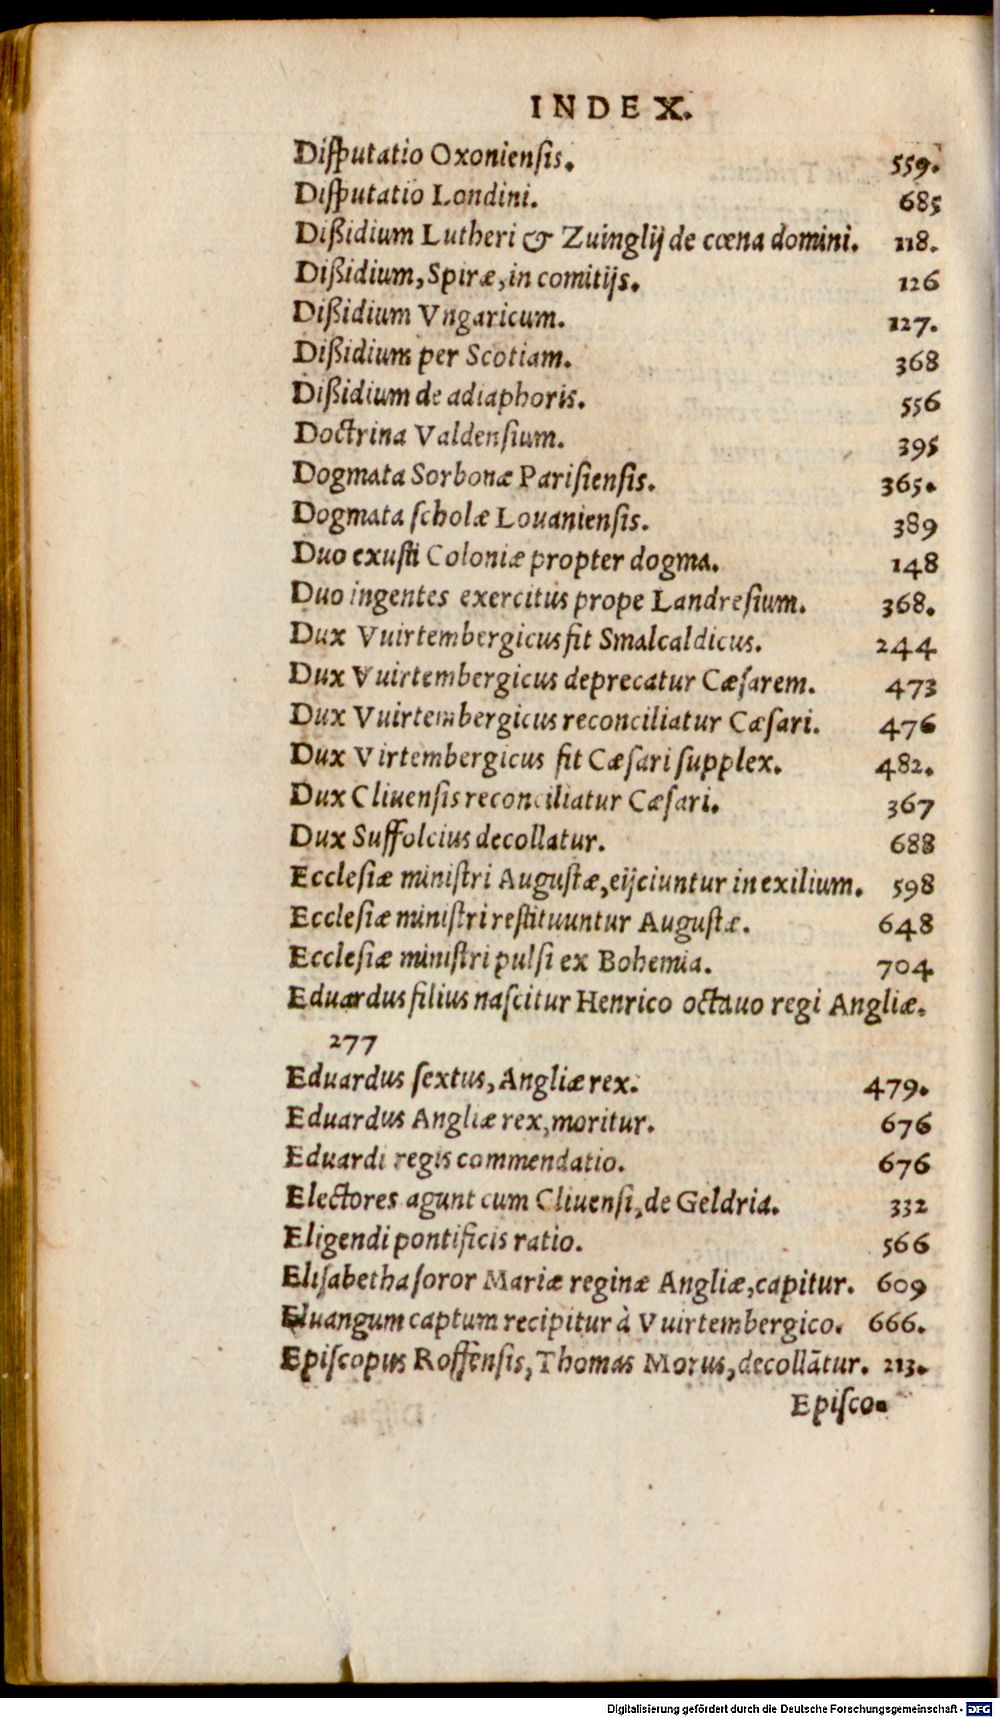 INDEX.
Diſputatio Oxonienſis. 559.
Diſputatio Londini. 685
Dißidium Lutheri & Zuinglij de cœna domini. 118.
Dißidium, Spiræ, in comitijs. 126
Dißidium Vngaricum. 127.
Dißidium per Scotiam. 368
Dißidium de adiaphoris. 556
Doctrina Valdenſium. 395
Dogmata Sorbonæ Pariſienſis. 365.
Dogmata ſcholæ Louanienſis. 389
Duo exuſti Coloniæ propter dogma. 148
Duo ingentes exercitus prope Landreſium. 368.
Dux Vuirtembergicus fit Smalcaldicus. 244
Dux Vuirtembergicus deprecatur Cæſarem. 473
Dux Vuirtembergicus reconciliatur Cæſari. 476
Dux Virtembergicus fit Cæſari ſupplex. 482.
Dux Cliuenſis reconciliatur Cæſari. 367
Dux Suffolcius decollatur. 688
Eccleſiæ miniſtri Auguſtæ, eijciuntur in exilium. 598
Eccleſiæ miniſtri reſtituuntur Auguſtæ. 648
Eccleſiæ miniſtri pulſi ex Bohemia. 704
Eduardus filius naſcitur Henrico octauo regi Angliæ.
277
Eduardus ſextus, Angliæ rex. 479.
Eduardus Angliæ rex, moritur. 676
Eduardi regis commendatio. 676
Electores agunt cum Cliuenſi, de Geldria. 332
Eligendi pontificis ratio. 566
Eliſabetha ſoror Mariæ reginæ Angliæ, capitur. 609
Eluangum captum recipitur à Vuirtembergico. 666.
Epiſcopus Roffenſis, Thomas Morus, decollātur. 213.
Epiſco-
Digitalisierung gefördert durch die Deutsche Forschungsgemeinschaft - DFG